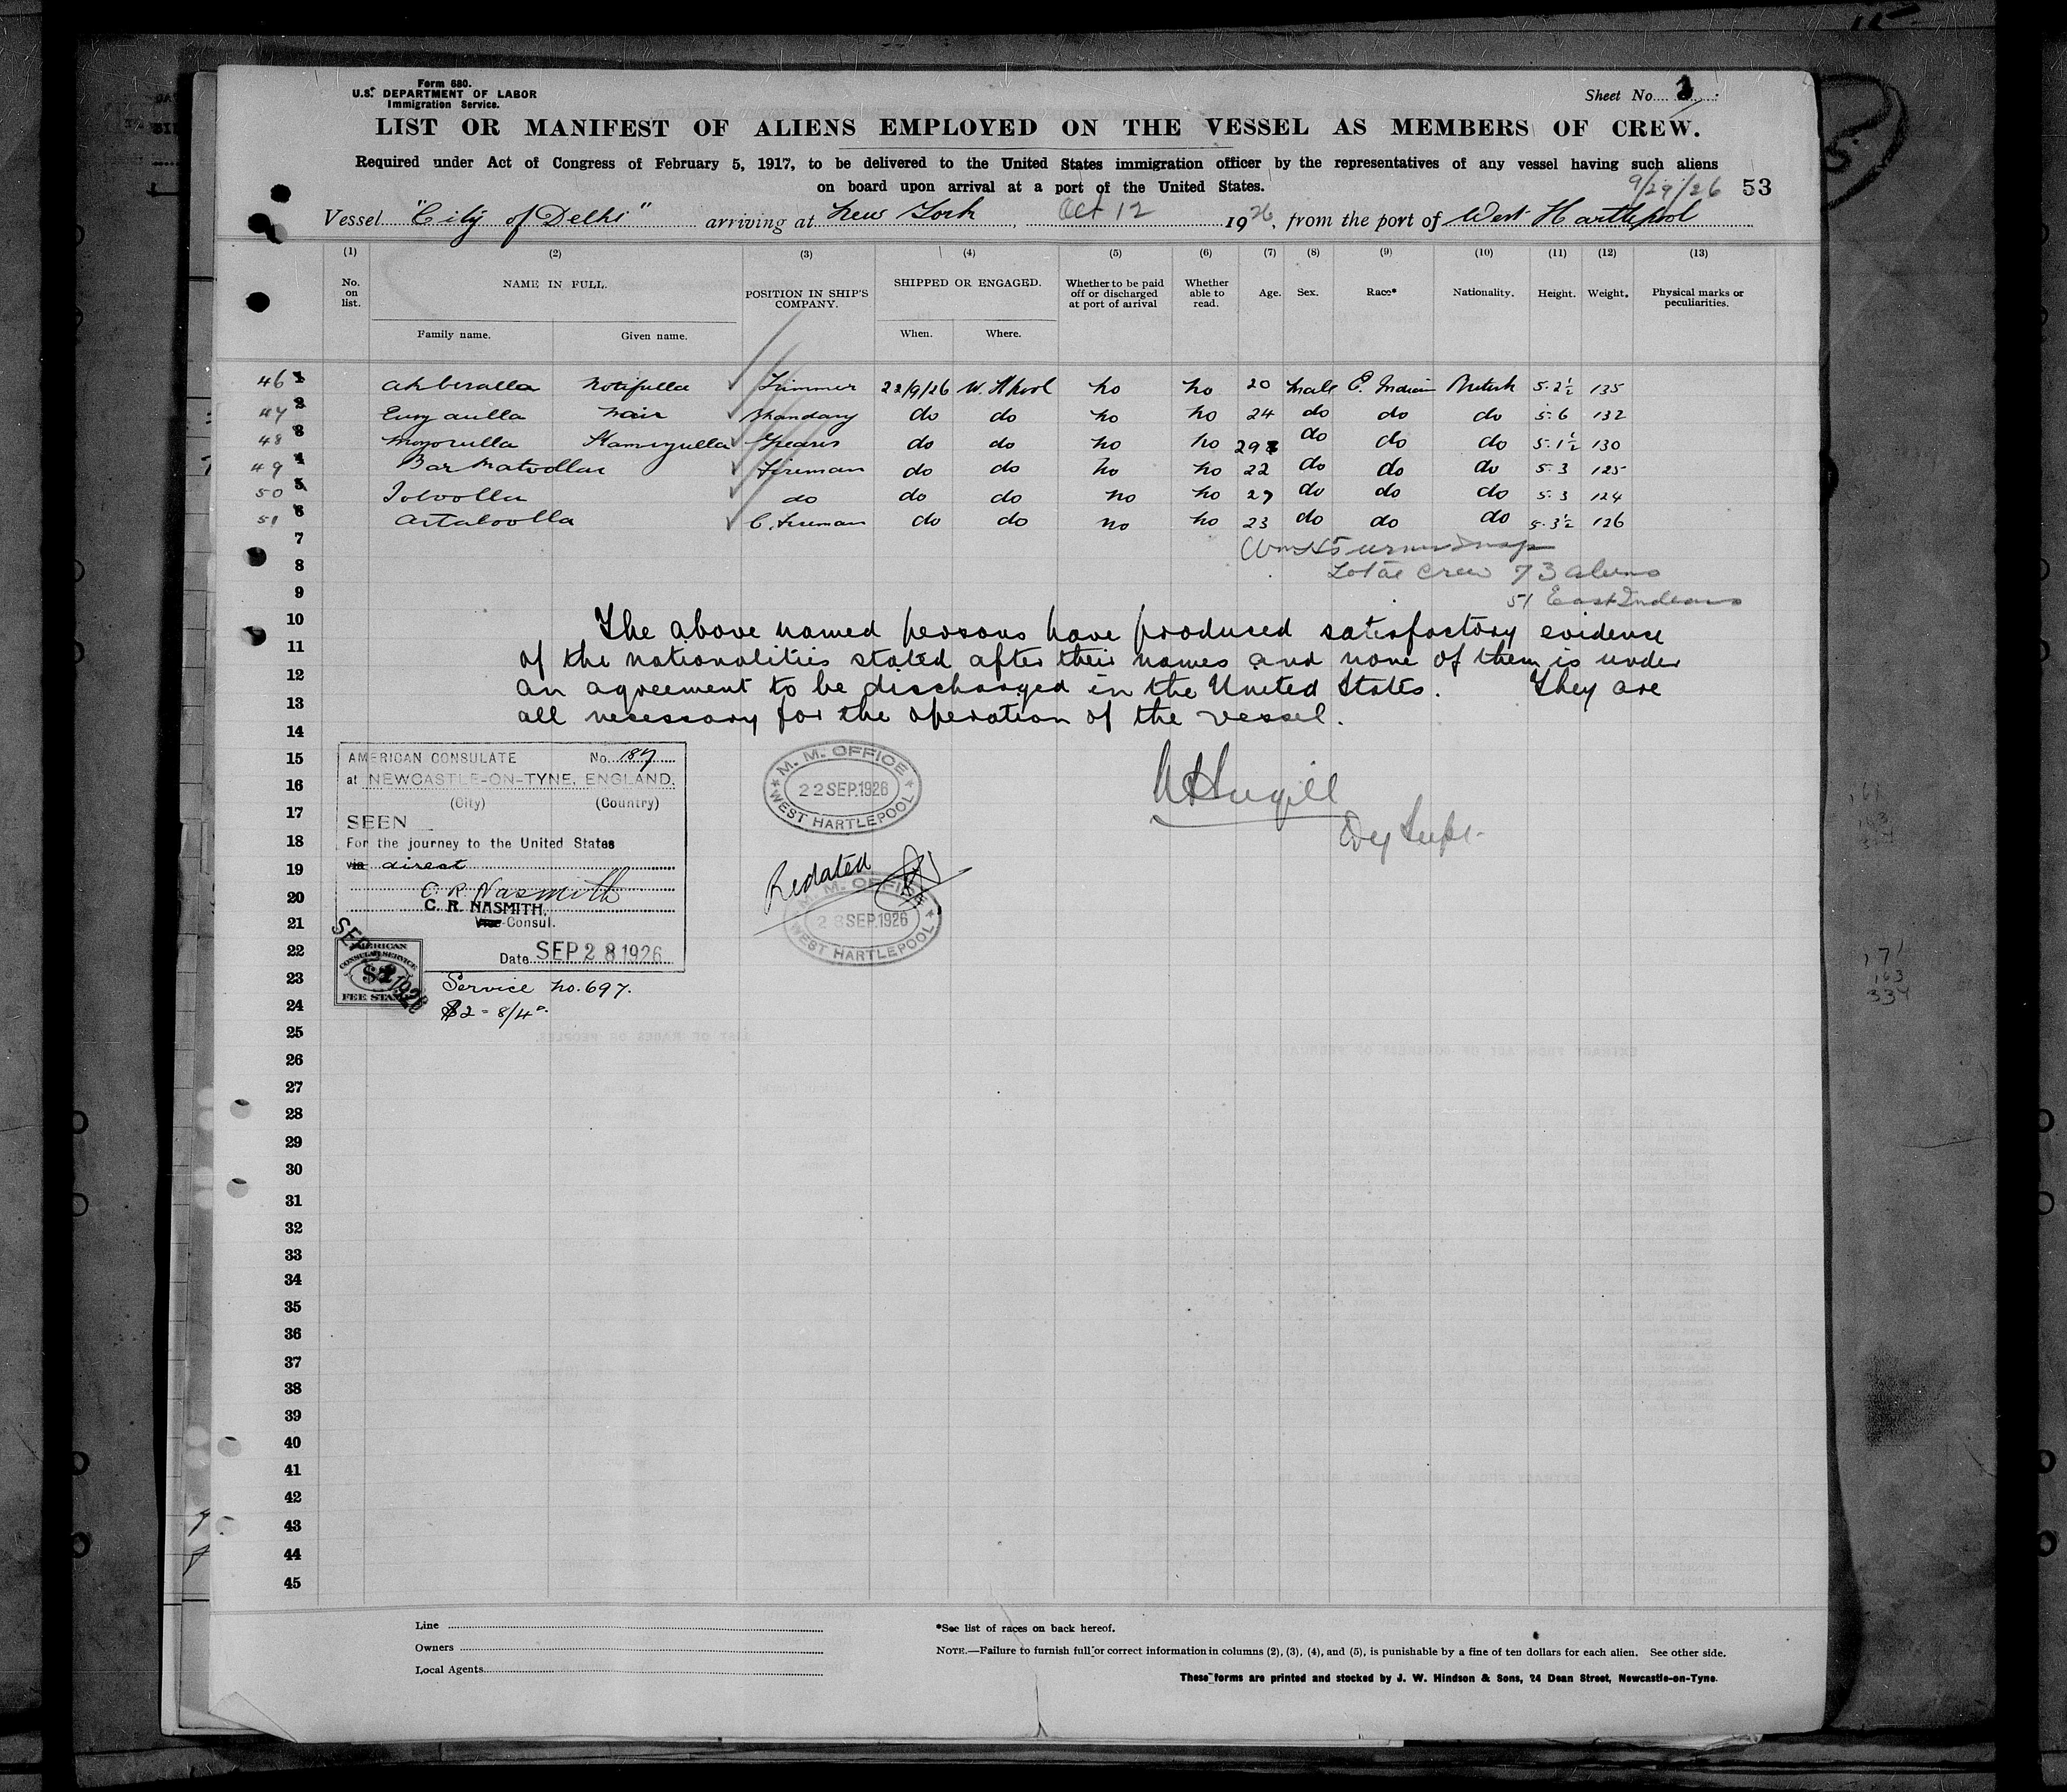 Form 680.
U.S. DEPARTMENT OF LABOR
Immigration Service.
Sheet No.
LIST OR MANIFEST OF ALIENS EMPLOYED ON THE VESSEL AS MEMBERS OF CREW.
Required under Act of Congress of February 5, 1917, to be delivered to the United States immigration officer by the representatives of any vessel having such aliens
on board upon arrival at a port of the United States.
9/29/26 53
Vessel "City of Delhi" arriving at New York, Oct 12 1926, from the port of West Hartlepool
(1) (2) (3) (4) (5) (6) (7) (8) (9) (10) (11) (12) (13)
No. on list. NAME IN FULL. POSITION IN SHIP'S COMPANY. SHIPPED OR ENGAGED. Whether to be paid off or discharged at port of arrival Whether able to read. Age. Sex. Race* Nationality. Height. Weight. Physical marks or peculiarities.
Family name. Given name. When. Where.
46 1 Akberalla Notifulla Trimmer 22/9/26 W. Hpool No No 20 Male E. Indian British 5.2½ 135
47 2 Nair Bhandary do do No No 24 do do do 5.6 132
48 3 Kamizulla Greaser do do No No 29 do do do 5.1½ 130
49 4 Fireman do do No No 22 do do do 5.3 125
50 5 do do do No No 27 do do do 5.3 124
51 6 C. Fireman do do No No 23 do do do 5.3½ 126
7
8 Total Crew 73 aliens
9 51 East Indians
10 The above named persons have produced satisfactory evidence
11 of the nationalities stated after their names and none of them is under
12 an agreement to be discharged in the United States. They are
13 all necessary for the operation of the vessel.
14
15
16
17
18
19
20
21
22
23
24
25
26
27
28
29
30
31
32
33
34
35
36
37
38
39
40
41
42
43
44
45
AMERICAN CONSULATE No. 187
at NEWCASTLE-ON-TYNE, ENGLAND.
(City) (Country)
SEEN
For the journey to the United States
via direct
C. R. Nasmith
C. R. NASMITH,
Vice Consul.
Date SEP 28 1926
AMERICAN
CONSULAR SERVICE
$2
FEE STAMP
Service No. 697.
$2 - 8/4
M. M. OFFICE
22 SEP. 1926
WEST HARTLEPOOL
Redated
M. M. OFFICE
28 SEP. 1926
WEST HARTLEPOOL
Dy Supt.
Line
Owners
Local Agents
*See list of races on back hereof.
NOTE.—Failure to furnish full or correct information in columns (2), (3), (4), and (5), is punishable by a fine of ten dollars for each alien. See other side.
These forms are printed and stocked by J. W. Hindson & Sons, 24 Dean Street, Newcastle-on-Tyne.
171
163
334